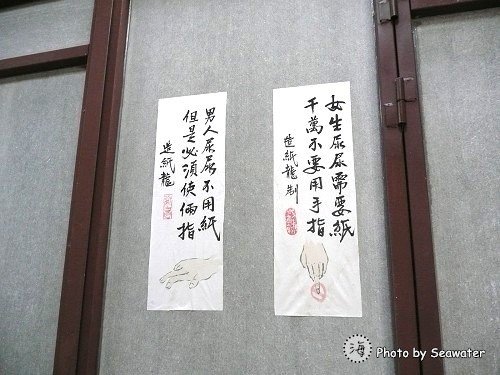 女生尿尿需要紙
千萬不要用手指
造紙龍製
男人尿尿不用紙
但是必須使倆指
造紙龍
海
Photo by Seawater